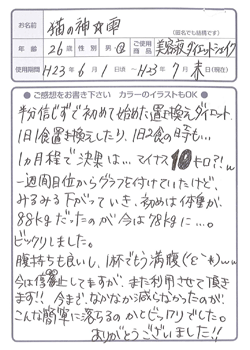 お名前 猫の神☆雫
(匿名でも結構です)
年齢 26歳 男・女 ご使用商品 美容液ダイエットシェイク
使用期間 H23年6月1日 〜 H23年7月末日(現在)
ご感想をお書き下さい カラーのイラストもOK
半分信じずで初めて始めた置き換えダイエット
1日1食置き換えしたり、1日2食の時も…
1ヵ月程で決果は…マイナス10キロ?!w
一週間目位からグラフを付けていたけど、
みるみる下がっていき、初めは体重が、
88kgだったのが今は78kgに…。
ビックリしました。
腹持ちも良いし、1杯でもう満腹(^ε^)w
今は停止してますが、また利用させて頂き
ます!! 今まで、なかなか減らなかったのが、
こんな簡単に落ちるのかとビックリでした。
ありがとうございました!!